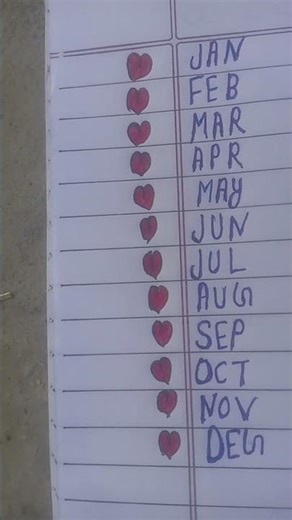 JAN
FEB
MAR
APR
MAY
JUN
JUL
AUG
SEP
OCT
NOV
DEG